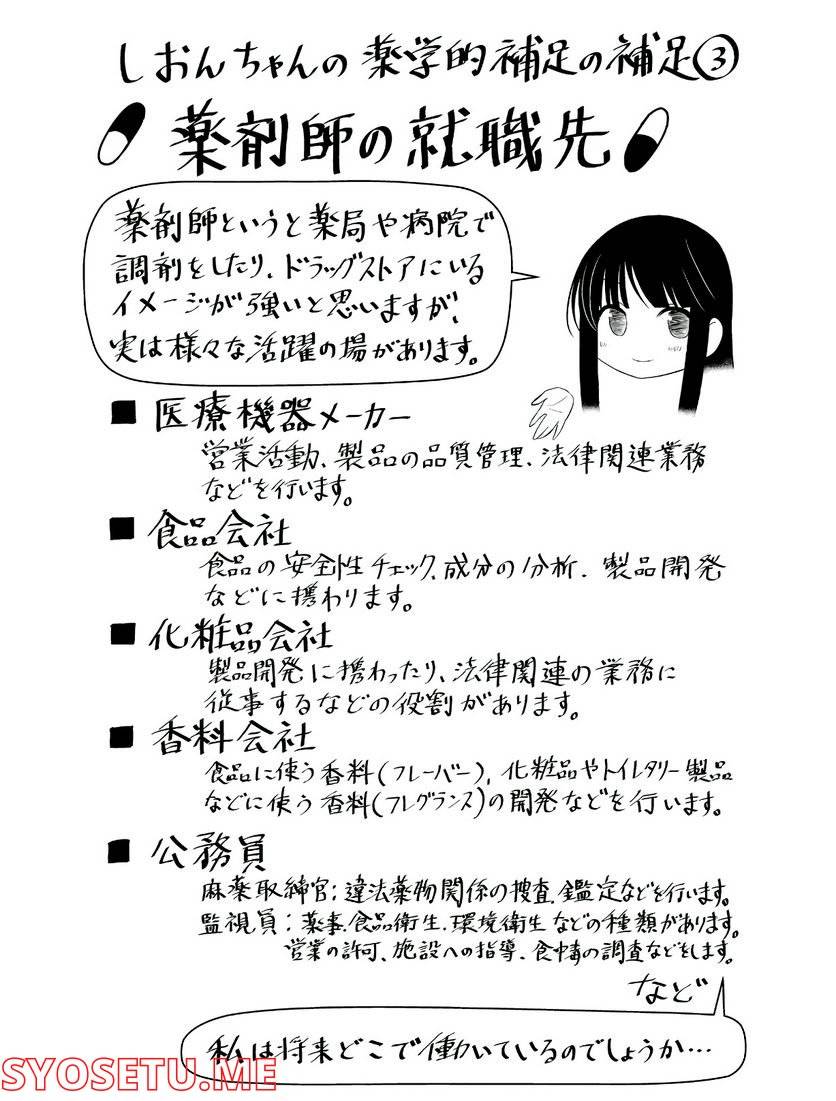 しおんちゃんの薬学的補足の補足③
薬剤師の就職先
薬剤師というと薬局や病院で
調剤をしたり、ドラッグストアにいる
イメージが強いと思いますが、
実は様々な活躍の場があります。
■ 医療機器メーカー
営業活動、製品の品質管理、法律関連業務
などを行います。
■ 食品会社
食品の安全性チェック、成分の分析、製品開発
などに携わります。
■ 化粧品会社
製品開発に携わったり、法律関連の業務に
従事するなどの役割があります。
■ 香料会社
食品に使う香料(フレーバー)、化粧品やトイレタリー製品
などに使う香料(フレグランス)の開発などを行います。
■ 公務員
麻薬取締官:違法薬物関係の捜査、鑑定などを行います。
監視員:薬事、食品衛生、環境衛生などの種類があります。
営業の許可、施設への指導、食中毒の調査などをします。
など
私は将来どこで働いているのでしょうか…
SYOSETU.ME